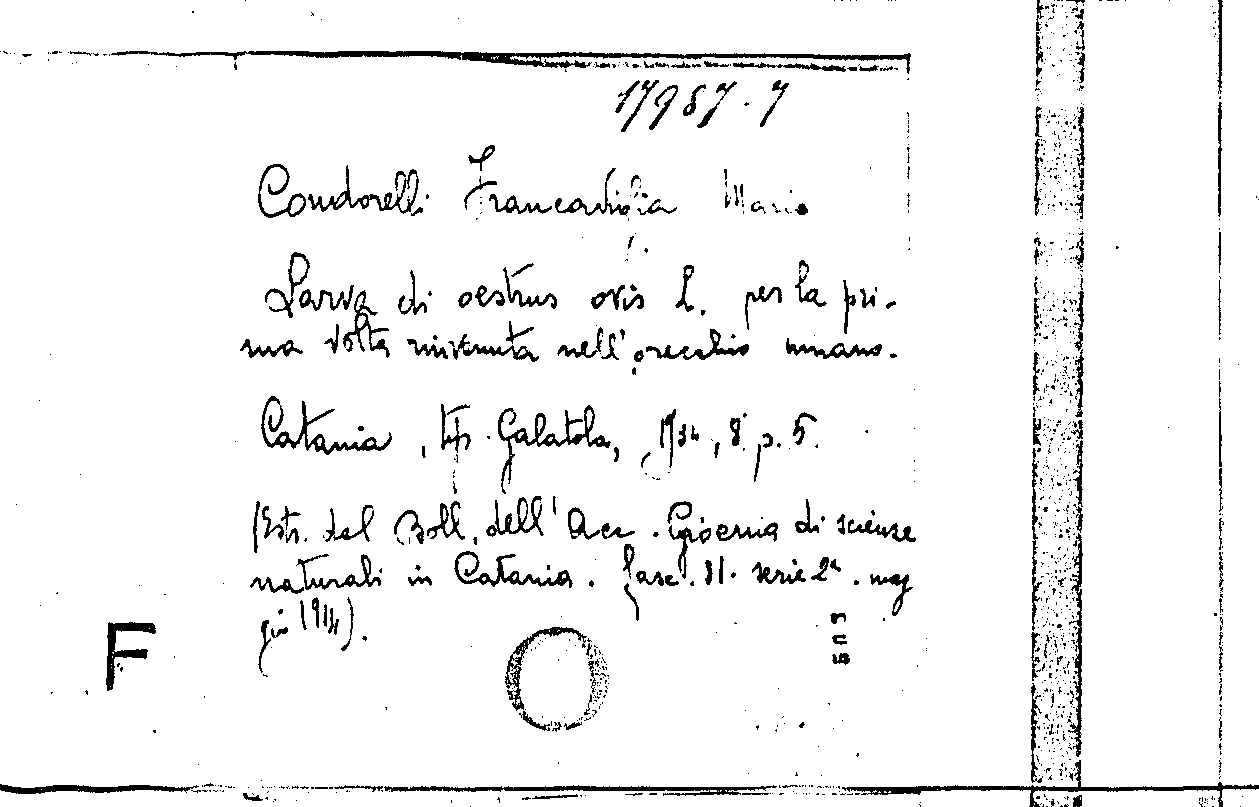 17987.7
Condorelli Francaviglia Mario
Larva di oestrus ovis L. per la pri-
ma volta rinvenuta nell'orecchio umano.
Catania, tip. Galatola, 1914, 8° p. 5.
(Estr. dal Boll. dell'Acc. Gioenia di scienze
naturali in Catania. fasc. 31. serie 2ª. mag
gio 1914).
F